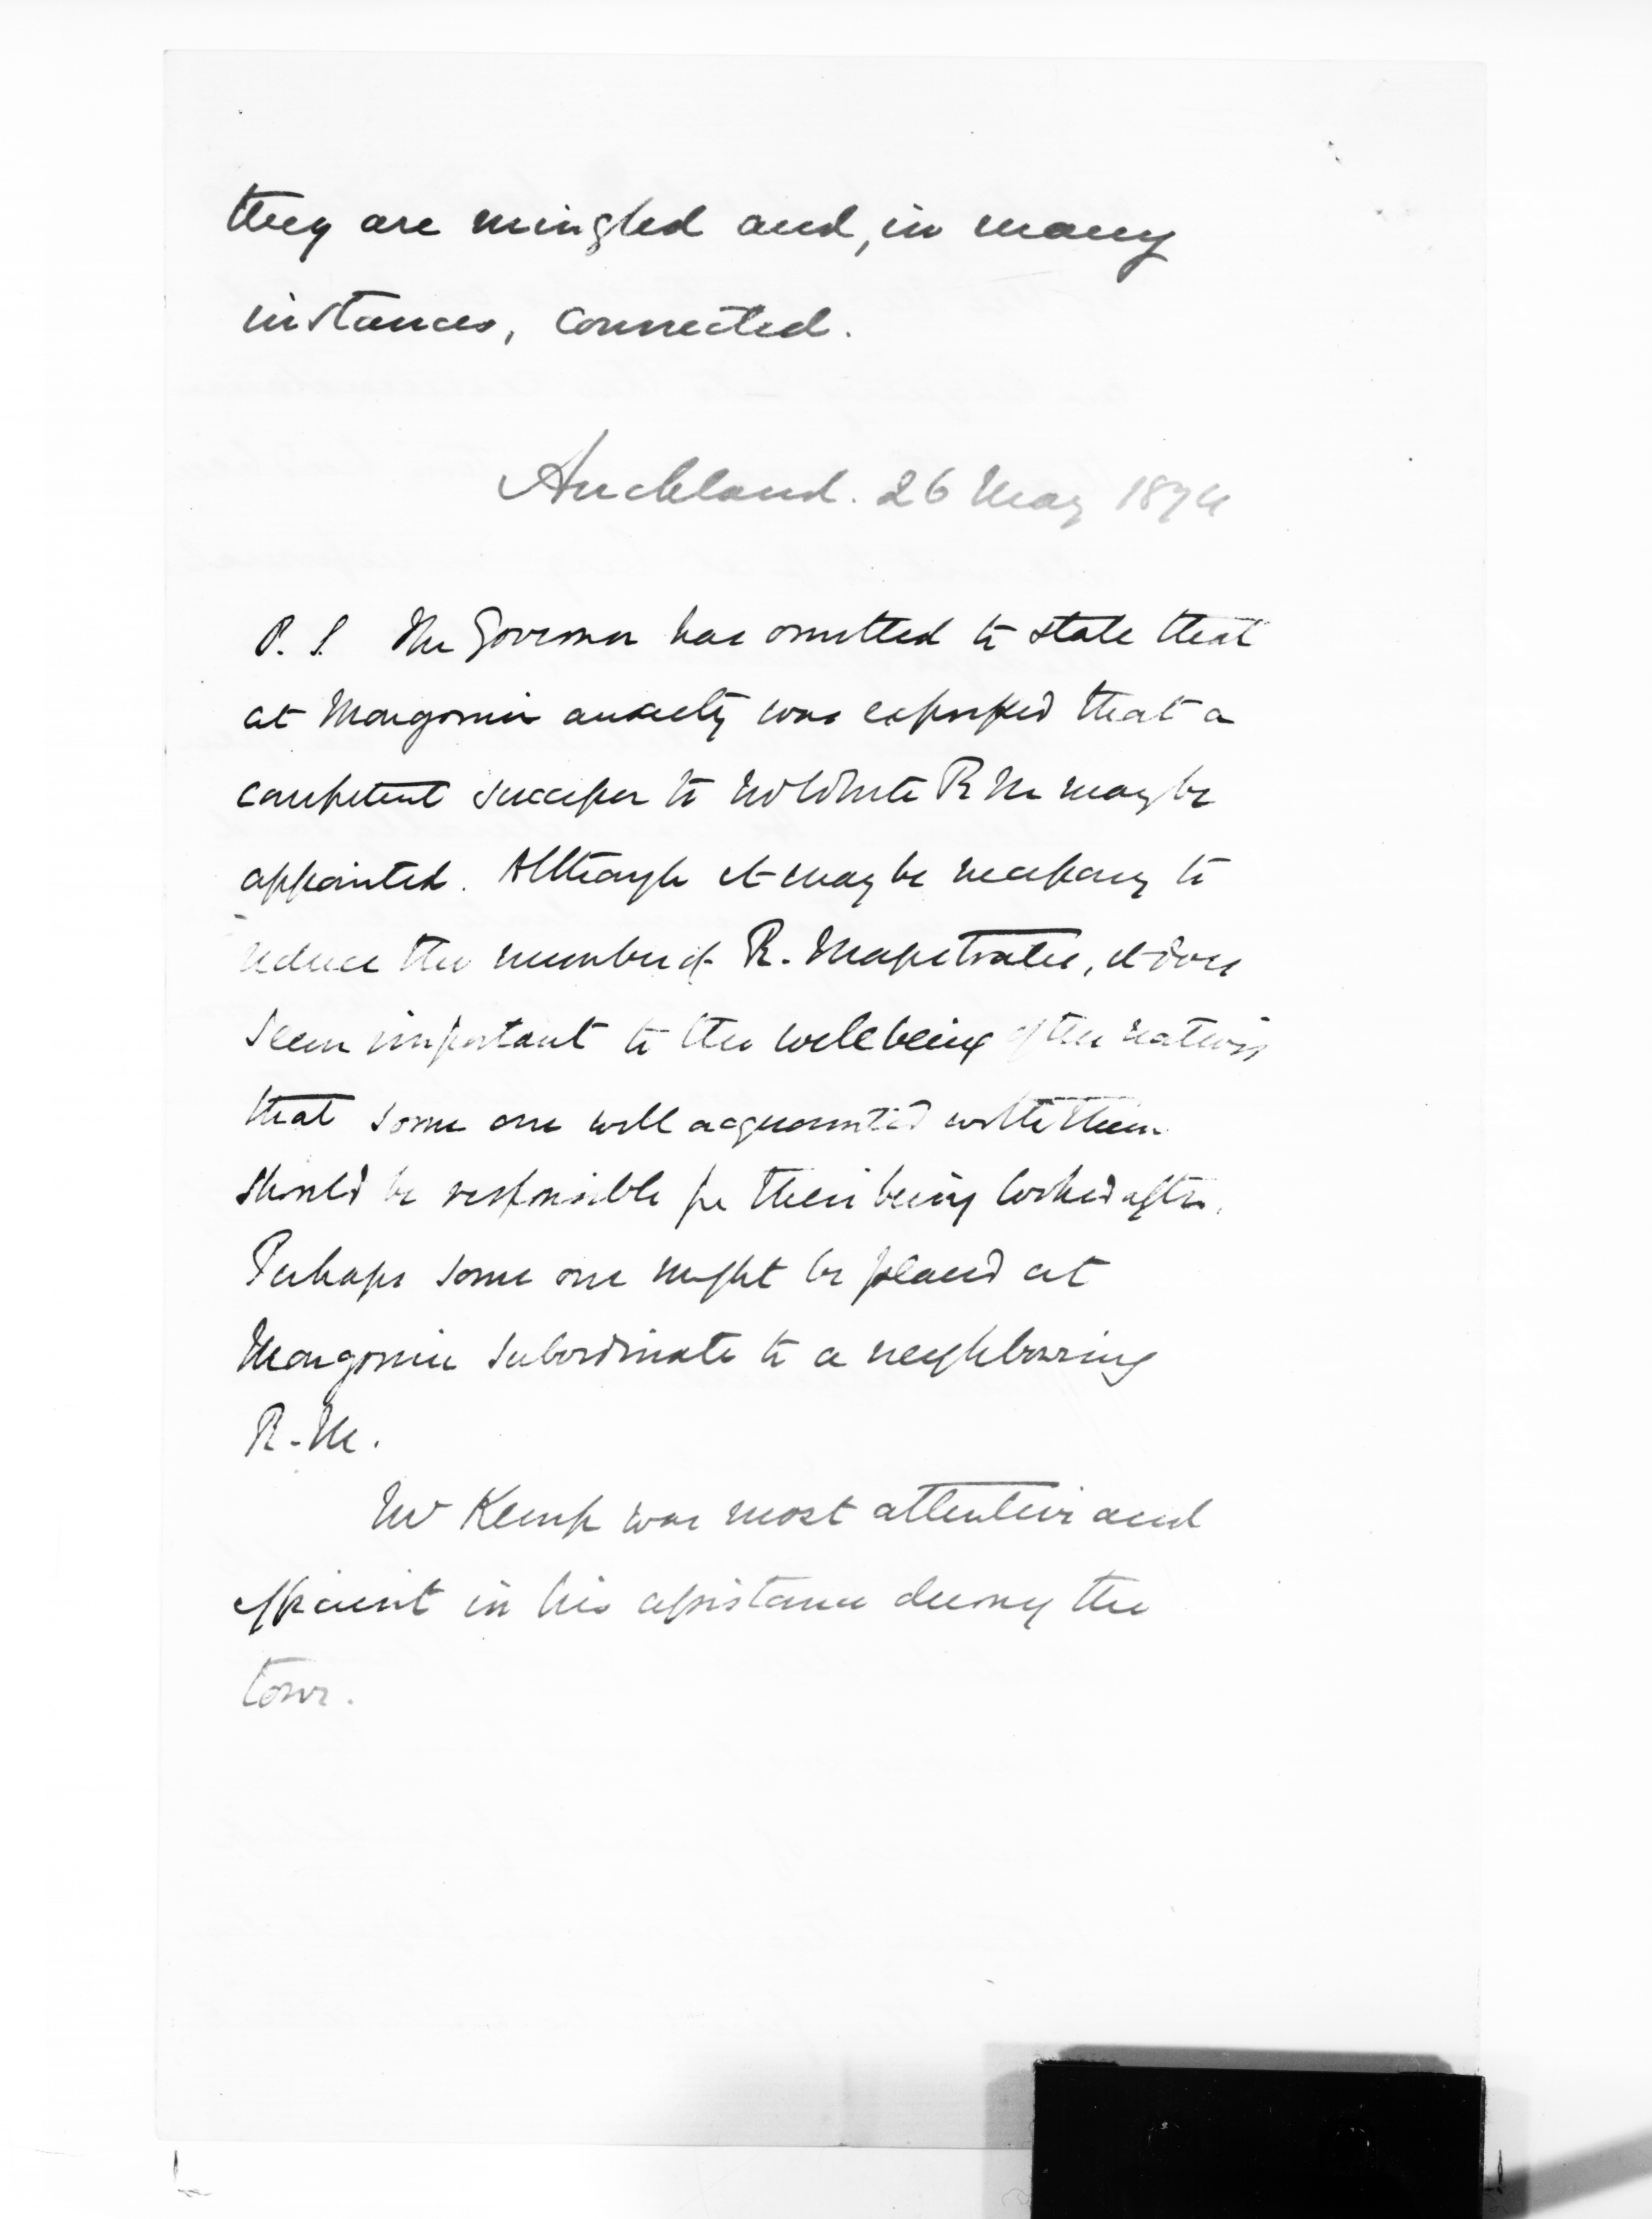 they are mingled and, in many
instances, connected.
Auckland. 26 May 1874
P. S. The Governor has omitted to state that
at Mongonui anxiety was expressed that a
competent successor to Mr White R M may be
appointed. Although it may be necessary to
reduce the number of R. Magistrates, it does
seem important to the well being of the natives
that some one well acquainted with them
should be responsible for their being looked after.
Perhaps some one might be placed at
Mongonui subordinate to a neighbouring
R. M.
Mr Kemp was most attentive and
efficient in his assistance during the
tour.